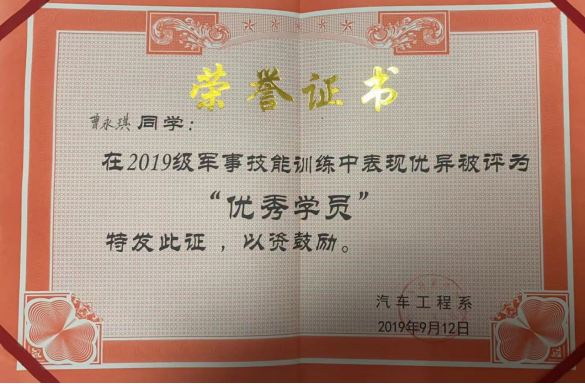 荣誉证书
曹永琪 同学：
在2019级军事技能训练中表现优异被评为
“优秀学员”
特发此证，以资鼓励。
汽车工程系
2019年9月12日